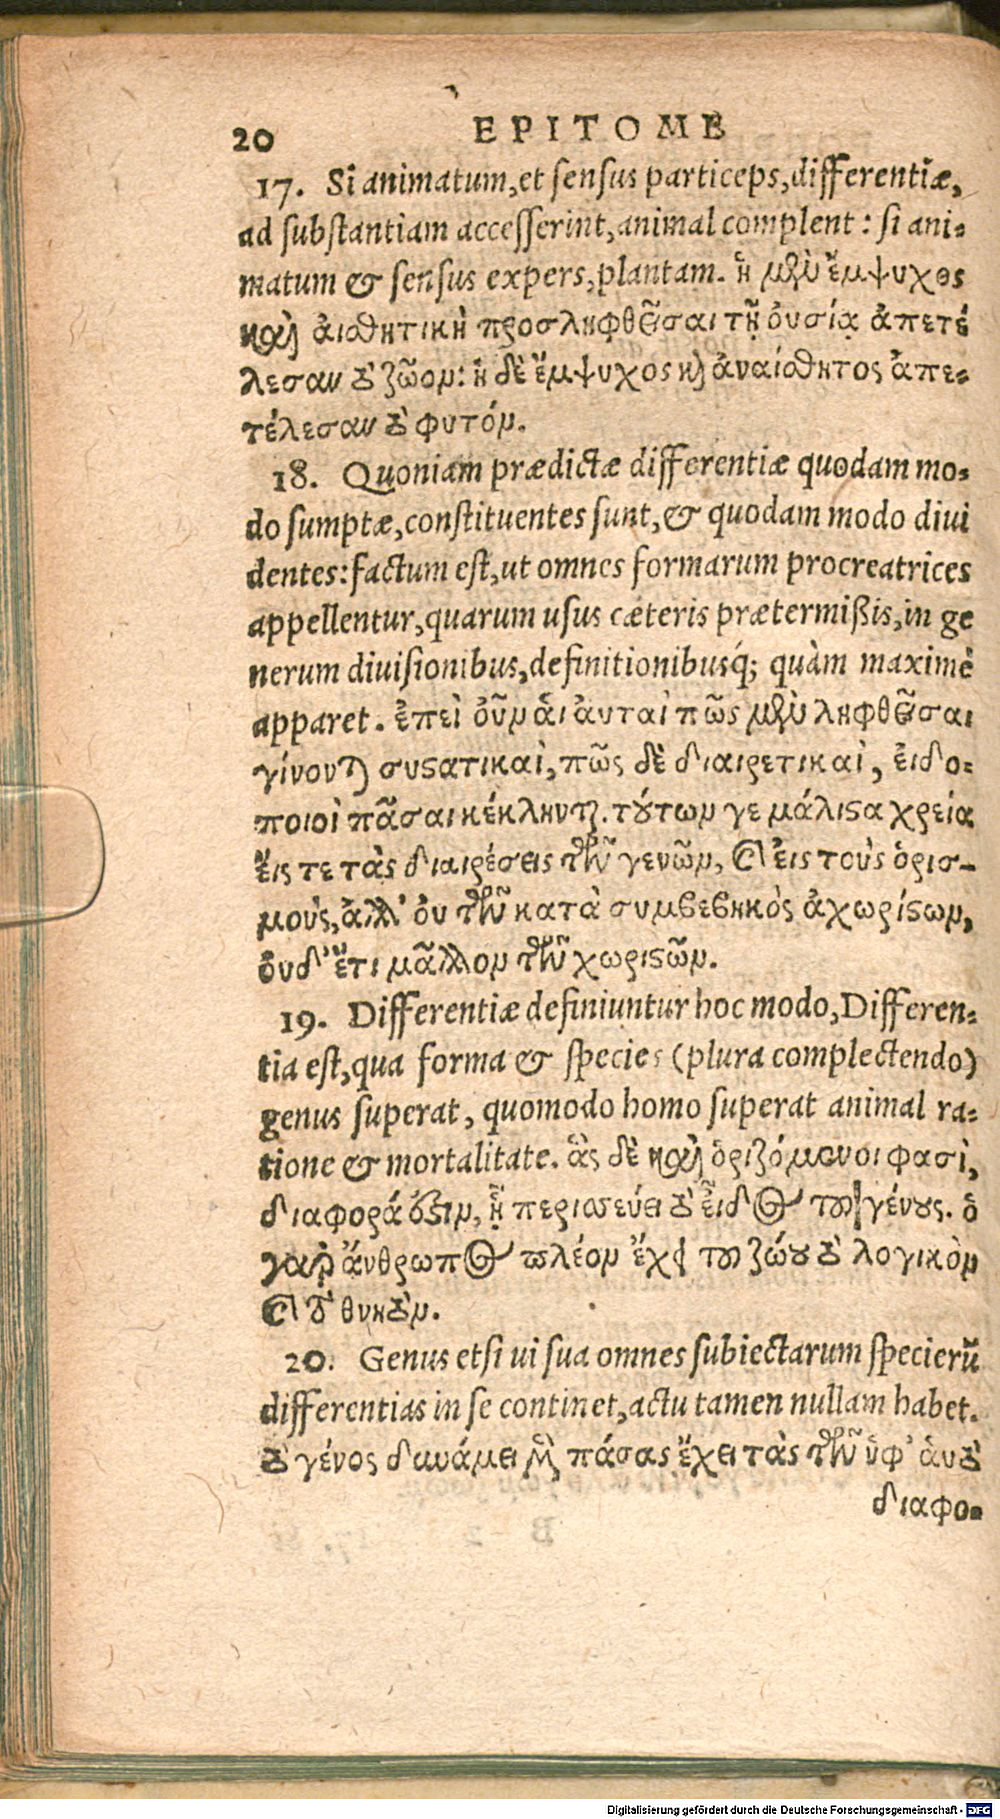 20 EPITOME
17. Si animatum, et sensus particeps, differentiæ,
ad substantiam accesserint, animal complent: si ani-
matum & sensus expers, plantam. ἡ μὲν ἔμψυχος
καὶ ἀισθητικὴ προσληφθεῖσαι τῇ ὀυσίᾳ ἀπετέ
λεσαν τὸ ζῶον: ἡ δὲ ἔμψυχος κὶ ἀναίσθητος ἀπε-
τέλεσαν τὸ φυτόν.
18. Quoniam prædictæ differentiæ quodam mo-
do sumptæ, constituentes sunt, & quodam modo diui
dentes: factum est, ut omnes formarum procreatrices
appellentur, quarum usus cæteris prætermißis, in ge
nerum diuisionibus, definitionibusq́; quàm maximè
apparet. ἐπεὶ οὖν ἁι ἀυταὶ πῶς μὲν ληφθεῖσαι
γίνονται συστατικαὶ, πῶς δὲ διαιρετικαὶ, ἐιδο-
ποιοὶ πᾶσαι κέκληνται. τούτων γε μάλιστα χρεία
ἔις τε τὰς διαιρέσεις τῶν γενῶν, καὶ ἐις τοὺς ὁρισ-
μοὺς, ἀλλ' ὀυ τῶν κατὰ συμβεβηκὸς ἀχωρίστων,
ὀυδ' ἔτι μᾶλλον τῶν χωριστῶν.
19. Differentiæ definiuntur hoc modo, Differen-
tia est, qua forma & species (plura complectendo)
genus superat, quomodo homo superat animal ra-
tione & mortalitate. ἃς δὲ καὶ ὁριζόμενοι φασὶ,
διαφορά ὅξιν, ᾗ περισσεύει τὸ εἶδος τοῦ γένους. ὁ
γαρ ἄνθρωπος πλέον ἔχει τοῦ ζώου τὸ λογικὸν
καὶ τὸ θνητόν.
20. Genus etsi ui sua omnes subiectarum specierũ
differentias in se continet, actu tamen nullam habet.
τὸ γένος δυνάμει μὲν πάσας ἔχει τὰς τῶν ὑφ' ἁυτὸ
διαφο-
Digitalisierung gefördert durch die Deutsche Forschungsgemeinschaft - DFG